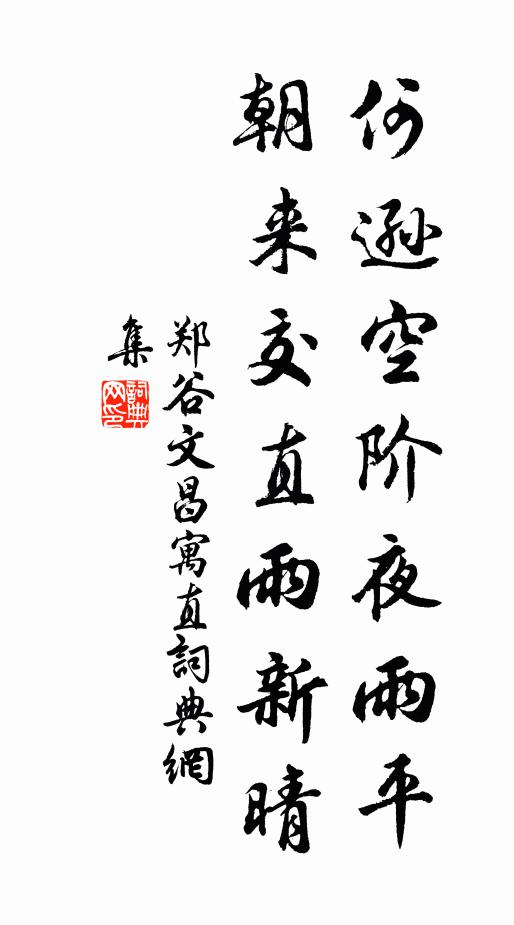 何遜空阶夜雨平
朝来交直雨新晴
郑谷文昌寓直詞典網
集
詞典网印